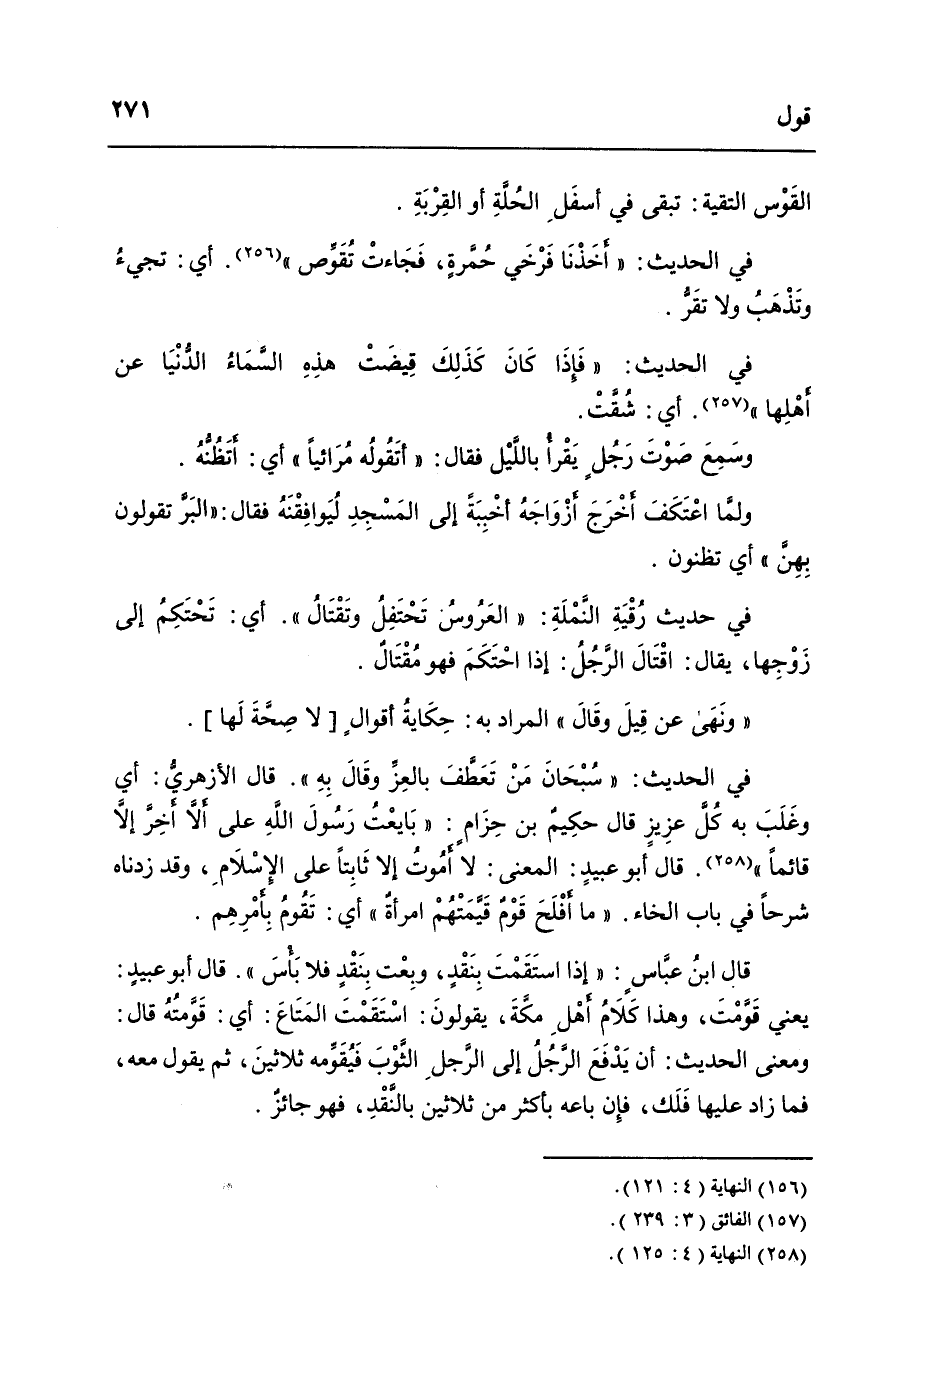 قول
٢٧١
القَوْس التقية: تبقى في أسفَلِ الحُلَّةِ أو القِرْبَةِ .
في الحديث: « أَخَذْنَا فَرْخَي حُمَّرةٍ، فَجَاءتْ تُقَوِّص »(٢٥٦). أي: تجيءُ
وتَذْهَبُ ولا تقَرُّ .
في الحديث: « فَإِذَا كَانَ كَذَلِكَ قِيضَتْ هذِهِ السَّمَاءُ الدُّنْيَا عن
أَهْلِها »(٢٥٧). أي: شُقَّتْ.
وسَمِعَ صَوْتَ رَجُلٍ يَقْرأُ باللَّيْل فقال: « أتَقُولُه مُرَائياً » أي: أَتَظُنُّهُ .
ولمَّا اعْتَكَفَ أَخْرَجَ أَزْوَاجَهُ أخْبِبَةً إلى المَسْجِدِ لُيَوافِقْنَهُ فقال:«البَرَّ تقولون
بِهِنَّ » أي تظنون .
في حديث رُقْيَةِ النَّمْلَةِ: « العَرُوسُ تَحْتَفِلُ وتَقْتَالُ ». أي: تَحْتَكِمُ إلى
زَوْجِها، يقال: اقْتَالَ الرَّجُلُ: إذا احْتَكَمَ فهو مُقْتَالٌ .
« ونَهَىٰ عن قِيلَ وقَالَ » المراد به: حِكَايةُ أقوالٍ [ لا صِحَّةَ لَها ] .
في الحديث: « سُبْحَانَ مَنْ تَعَطَّفَ بالعِزِّ وقَالَ بِهِ ». قال الأزهريُّ: أي
وغَلَبَ به كُلَّ عزيزٍ قال حكيمُ بن حِزَامٍ: « بَايعْتُ رَسُولَ اللَّهِ على أَلَّا أَخِرَّ إلاَّ
قائماً »(٢٥٨). قال أبو عبيدٍ: المعنى: لا أَمُوتُ إلا ثَابِتاً على الإسْلَامِ، وقد زدناه
شرحاً في باب الخاء. « ما أَفْلَحَ قَوْمٌ قَيَّمَتْهُمْ امرأةٌ » أي: تَقُومُ بِأَمْرِهِم .
قال ابنُ عبَّاسٍ: « إذا استَقَمْتَ بِنَقْدٍ، وبِعْت بِنَقْدٍ فلا بَأْسَ ». قال أبو عبيدٍ:
يعني قَوَّمْتَ، وهذا كَلَامُ أَهْلِ مكَّةَ، يقولونَ: اسْتَقَمْتَ المَتَاعَ: أي: قَوَّمتُهُ قال:
ومعنى الحديث: أن يَدْفَعَ الرَّجُلُ إلى الرَّجلِ الثَّوْبَ فَيُقَوِّمه ثلاثينَ، ثم يقول معه،
فما زاد عليها فَلَك، فإن باعه بأكثر من ثلاثين بالنَّقْدِ، فهو جائزٌ .
(١٥٦) النهاية ( ٤: ١٢١).
(١٥٧) الفائق ( ٣: ٢٣٩ ).
(٢٥٨) النهاية ( ٤: ١٢٥ ).